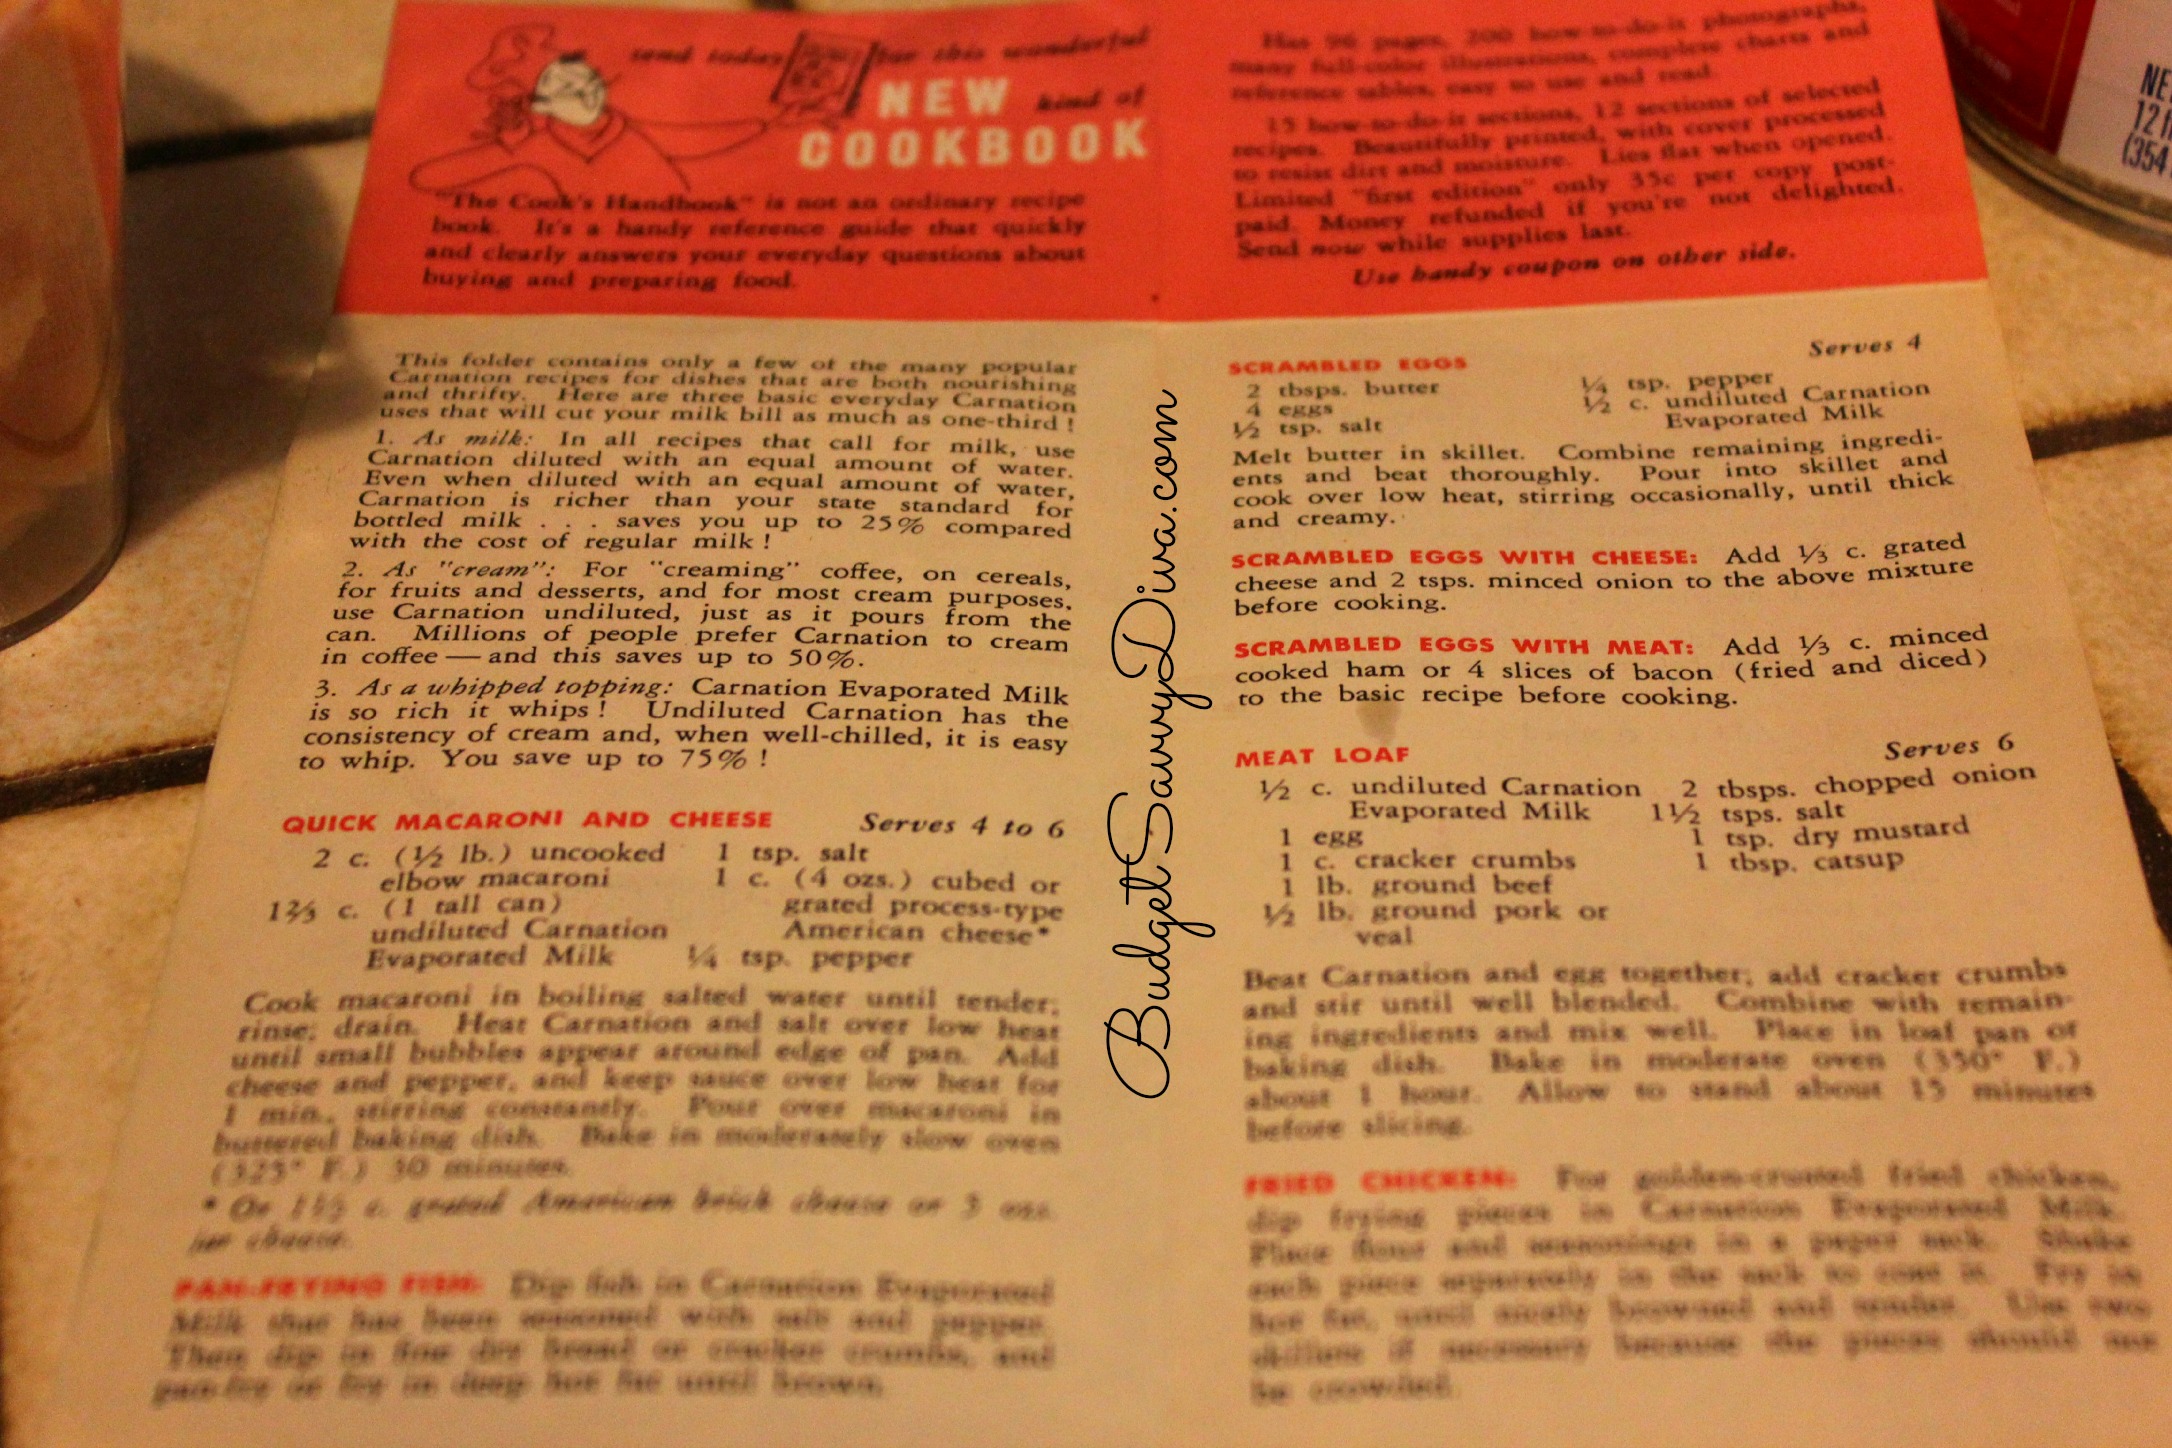 send today for this wonderful
NEW kind of
COOKBOOK
"The Cook's Handbook" is not an ordinary recipe
book. It's a handy reference guide that quickly
and clearly answers your everyday questions about
buying and preparing food.
This folder contains only a few of the many popular
Carnation recipes for dishes that are both nourishing
and thrifty. Here are three basic everyday Carnation
uses that will cut your milk bill as much as one-third !
1. As milk: In all recipes that call for milk, use
Carnation diluted with an equal amount of water.
Even when diluted with an equal amount of water,
Carnation is richer than your state standard for
bottled milk . . . saves you up to 25% compared
with the cost of regular milk !
2. As "cream": For "creaming" coffee, on cereals,
for fruits and desserts, and for most cream purposes,
use Carnation undiluted, just as it pours from the
can. Millions of people prefer Carnation to cream
in coffee — and this saves up to 50%.
3. As a whipped topping: Carnation Evaporated Milk
is so rich it whips ! Undiluted Carnation has the
consistency of cream and, when well-chilled, it is easy
to whip. You save up to 75% !
QUICK MACARONI AND CHEESE Serves 4 to 6
2 c. (½ lb.) uncooked
elbow macaroni
1⅔ c. (1 tall can)
undiluted Carnation
Evaporated Milk
1 tsp. salt
1 c. (4 ozs.) cubed or
grated process-type
American cheese*
¼ tsp. pepper
Cook macaroni in boiling salted water until tender,
rinse, drain. Heat Carnation and salt over low heat
until small bubbles appear around edge of pan. Add
cheese and pepper, and keep sauce over low heat for
1 min., stirring constantly. Pour over macaroni in
buttered baking dish. Bake in moderately slow oven
(325° F.) 30 minutes.
* Or grated American brick cheese or 3 ozs.
cheese.
PAN-FRYING FISH: Dip fish in Carnation Evaporated
Milk that has been seasoned with salt and pepper.
Then dip in fine dry bread or cracker crumbs, and
pan-fry or fry in deep hot fat until brown.
BudgetSavvyDiva.com
Has 96 pages, 200 how-to-do-it photographs,
many full-color illustrations, complete charts and
reference tables, easy to use and read.
15 how-to-do-it sections, 12 sections of selected
recipes. Beautifully printed, with cover processed
to resist dirt and moisture. Lies flat when opened.
Limited "first edition" only 35c per copy post-
paid. Money refunded if you're not delighted.
Send now while supplies last.
Use handy coupon on other side.
SCRAMBLED EGGS Serves 4
2 tbsps. butter
4 eggs
½ tsp. salt
¼ tsp. pepper
½ c. undiluted Carnation
Evaporated Milk
Melt butter in skillet. Combine remaining ingredi-
ents and beat thoroughly. Pour into skillet and
cook over low heat, stirring occasionally, until thick
and creamy.
SCRAMBLED EGGS WITH CHEESE: Add ⅓ c. grated
cheese and 2 tsps. minced onion to the above mixture
before cooking.
SCRAMBLED EGGS WITH MEAT: Add ⅓ c. minced
cooked ham or 4 slices of bacon (fried and diced)
to the basic recipe before cooking.
MEAT LOAF Serves 6
½ c. undiluted Carnation
Evaporated Milk
1 egg
1 c. cracker crumbs
1 lb. ground beef
½ lb. ground pork or
veal
2 tbsps. chopped onion
1½ tsps. salt
1 tsp. dry mustard
1 tbsp. catsup
Beat Carnation and egg together, add cracker crumbs
and stir until well blended. Combine with remain-
ing ingredients and mix well. Place in loaf pan or
baking dish. Bake in moderate oven (350° F.)
about 1 hour. Allow to stand about 15 minutes
before slicing.
FRIED CHICKEN: For golden-crusted fried chicken,
dip frying pieces in Carnation Evaporated Milk.
Place flour and seasonings in a paper sack. Shake
each piece separately in the sack to coat it. Fry in
hot fat, until nicely browned and tender. Use two
skillets if necessary because the pieces should not
be crowded.
NE
12 f
(354